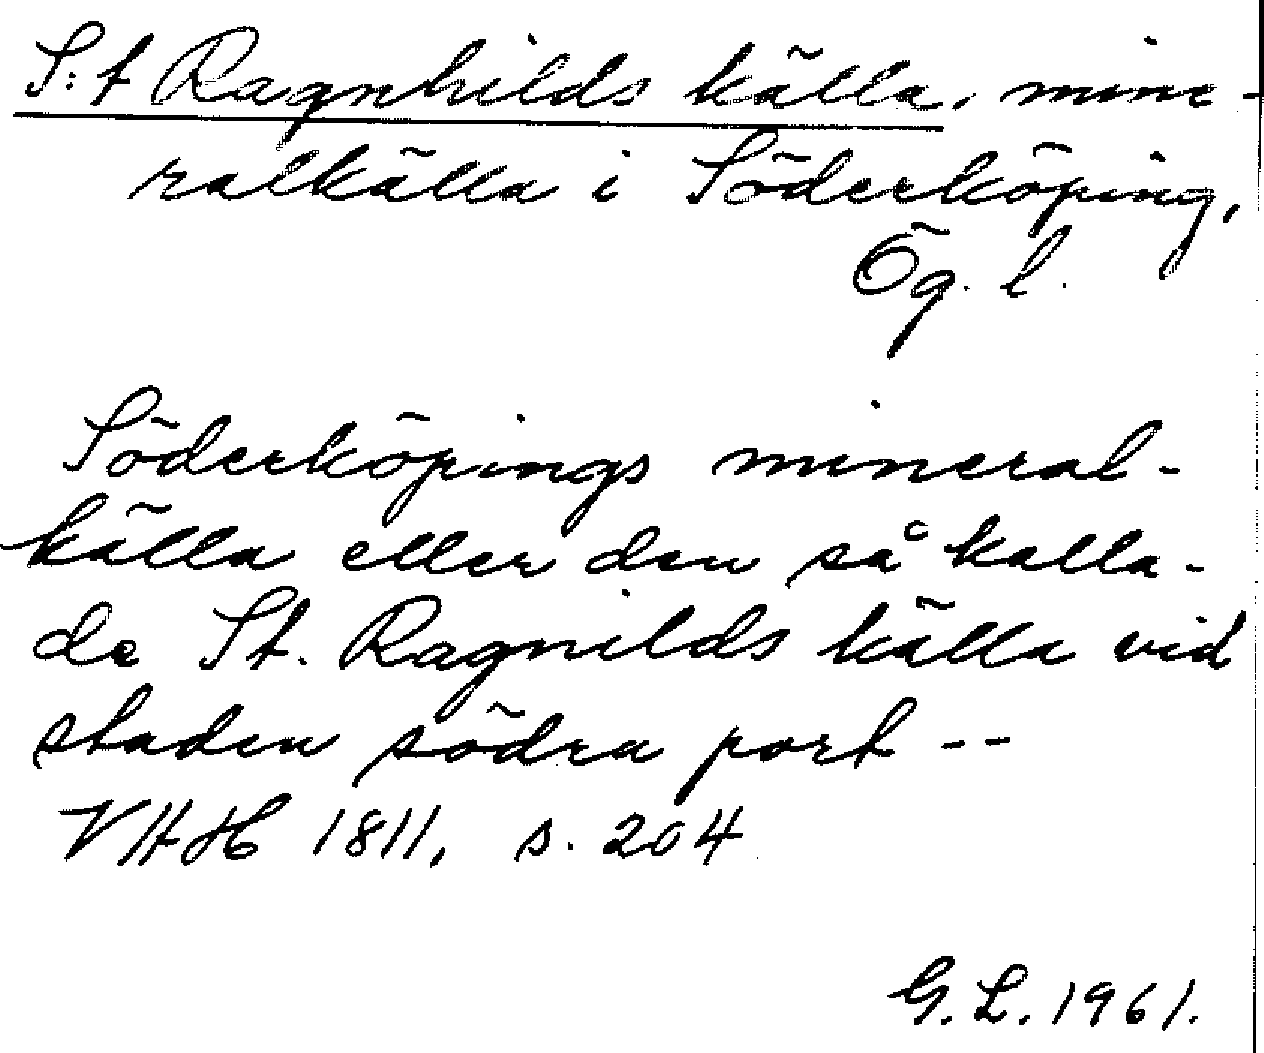 S:t Ragnhilds källa, mine-
ralkälla i Söderköping,
Ög. l.
Söderköpings mineral-
källa eller den så kalla-
de St. Ragnilds källa vid
staden södra port --
VHH 1811, s. 204
G. L. 1961.